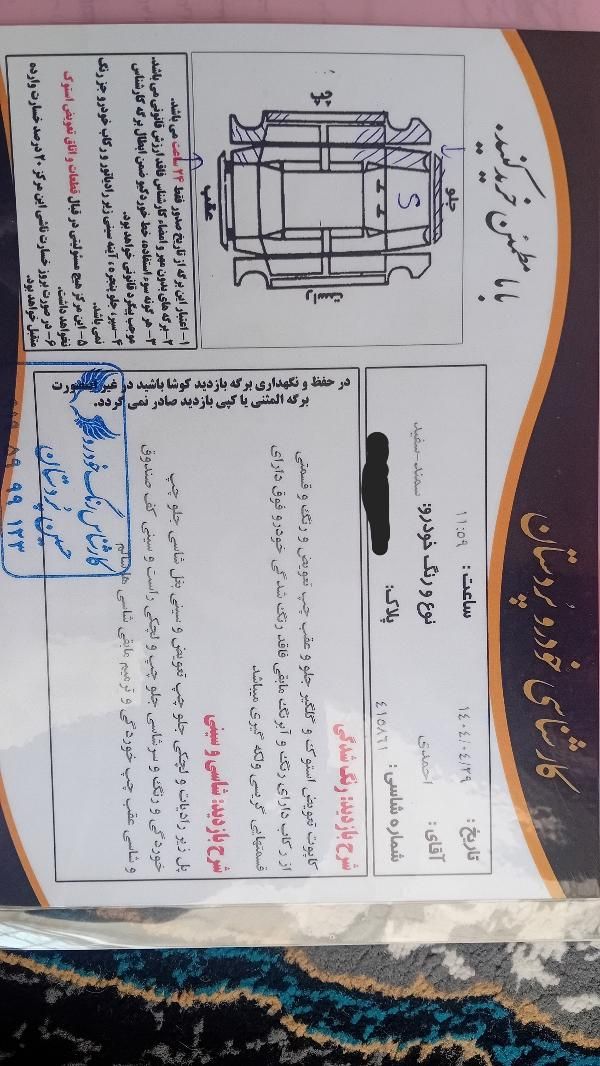 کارشناسی خودرو پردستان
با ما مطمئن خرید کنید
تاریخ: ۱۴۰۴/۰۴/۲۹
ساعت: ۱۱:۵۹
آقای: احمدی
نوع و رنگ خودرو: سمند-سفید
شماره شاسی: ۴۱۵۸۶۱
پلاک:
شرح بازدید: رنگ شدگی
کاپوت تعویض استوک و گلگیر جلو و عقب چپ تعویض و رنگ و قسمتی
از رکاب دارای رنگ و آبرنگ مابقی فاقد رنگ شدگی خودرو فوق دارای
قسمتهایی گریسی ولکه گیری میباشد
شرح بازدید: شاسی و سینی
پل زیر رادیات و لچکی جلو چپ تعویض و سینی بغل شاسی جلو چپ
خوردگی و رنگ و سرشاسی جلو چپ و لچکی راست و سینی کف صندوق
و شاسی عقب چپ خوردگی و ترمیم مابقی شاسی ها سالم
در حفظ و نگهداری برگه بازدید کوشا باشید در غیر اینصورت
برگه المثنی یا کپی بازدید صادر نمی گردد.
کارشناس رنگ خودرو
حسین پردستان
۸۹ ۹۹ ۱۲۳
جلو
S
چپ
راست
عقب
۱- اعتبار این برگه از تاریخ صدور فقط ۲۴ ساعت می باشد.
۲- برگه های بدون مهر و امضاء کارشناس فاقد ارزش قانونی می باشد.
۳- هر گونه سوء استفاده، خط خوردگی و ضمن ابطال برگه کارشناس
موجب پیگرد قانونی خواهد بود.
۴- سپر، جلو پنجره، آینه، سینی زیر رادیاتور و رکاب خودرو جز رنگ
نمی باشد.
۵- این مرکز هیچ مسئولیتی در قبال قطعات و اتاق تعویض استوک
نخواهد داشت.
۶- در صورت بروز خسارت ناشی این مرکز ۲۰ درصد خسارت وارده
متقبل خواهد بود.